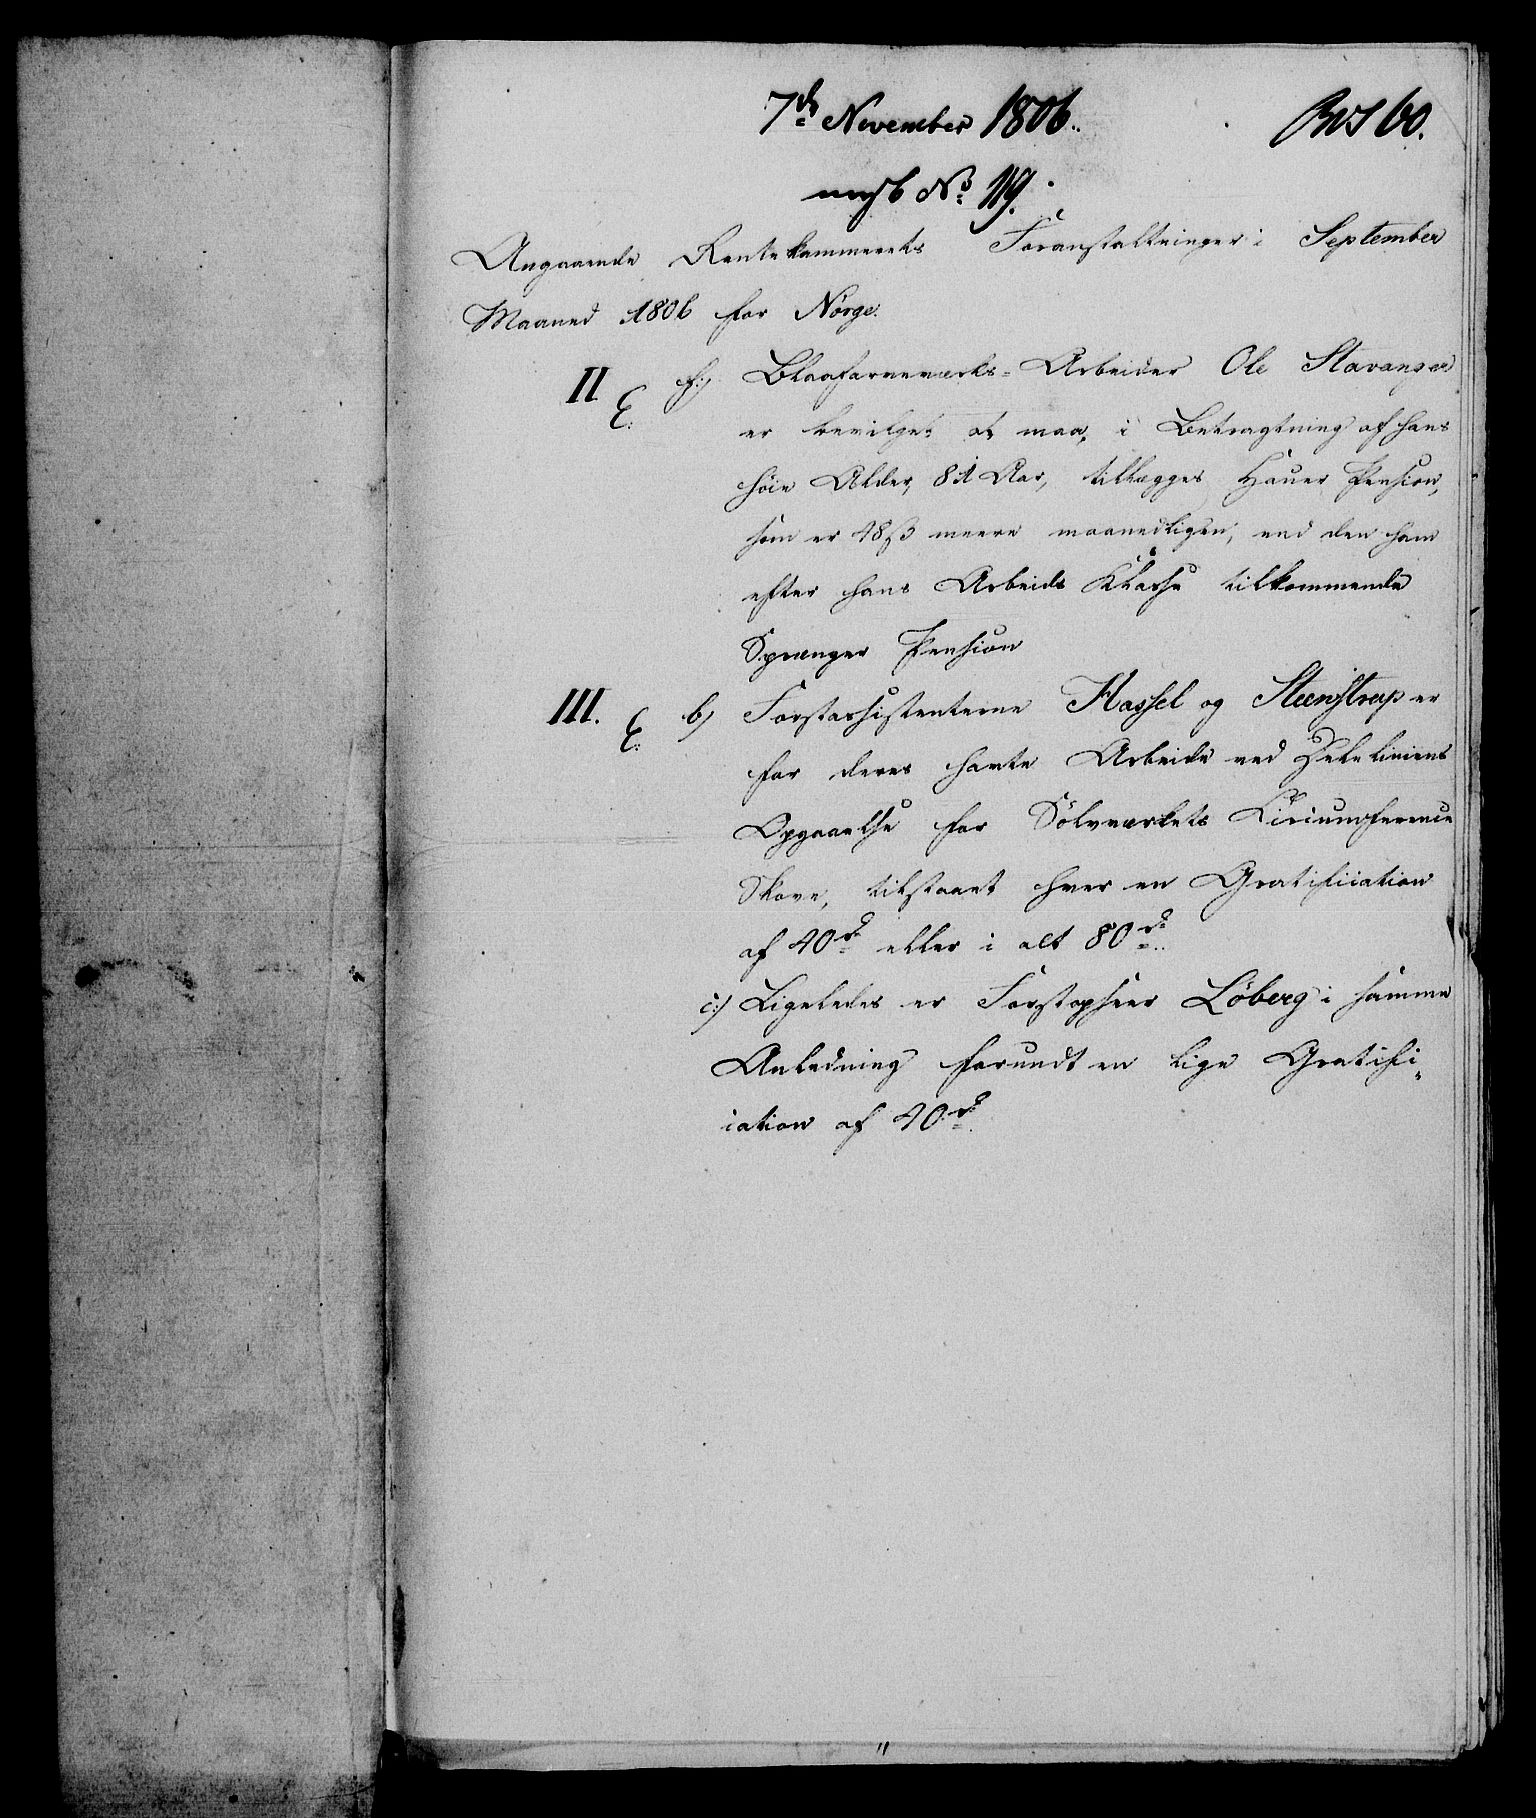 7de November 1806.
No 119.
Angaaende Rentekammerets Foranstaltninger i September
Maaned 1806 for Norge.
II E. f:) Blaafarveværks-Arbeider Ole Stavanger
er bevilget at maa, i Betragtning af hans
høie Alder, 81 Aar, tillægges Hauer Pension,
som er 48 ß meere maanedligen, end den ham
efter hans Arbeids Klasse tilkommende
Sprænger Pension
III. E. b) Forstassistenterne Hassel og Steenstrup er
for deres havte Arbeide ved Deleliniens
Opgaaelse for Sølvværkets Circumference
Skove, tilstaaet hver en Gratification
af 40 rd eller i alt 80 rd.
c:) Ligeledes er Forstopseer Löberg i samme
Anledning forundt en lige Gratifi-
cation af 40 rd.